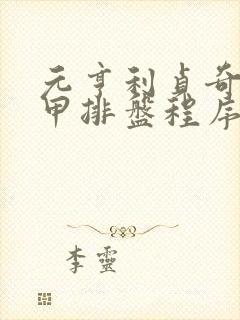 元亨利貞奇
甲排盤程序
李靈